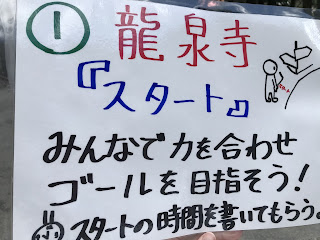 ① 龍泉寺
『スタート』
みんなで力を合わせ
ゴールを目指そう!
スタートの時間を書いてもらう。